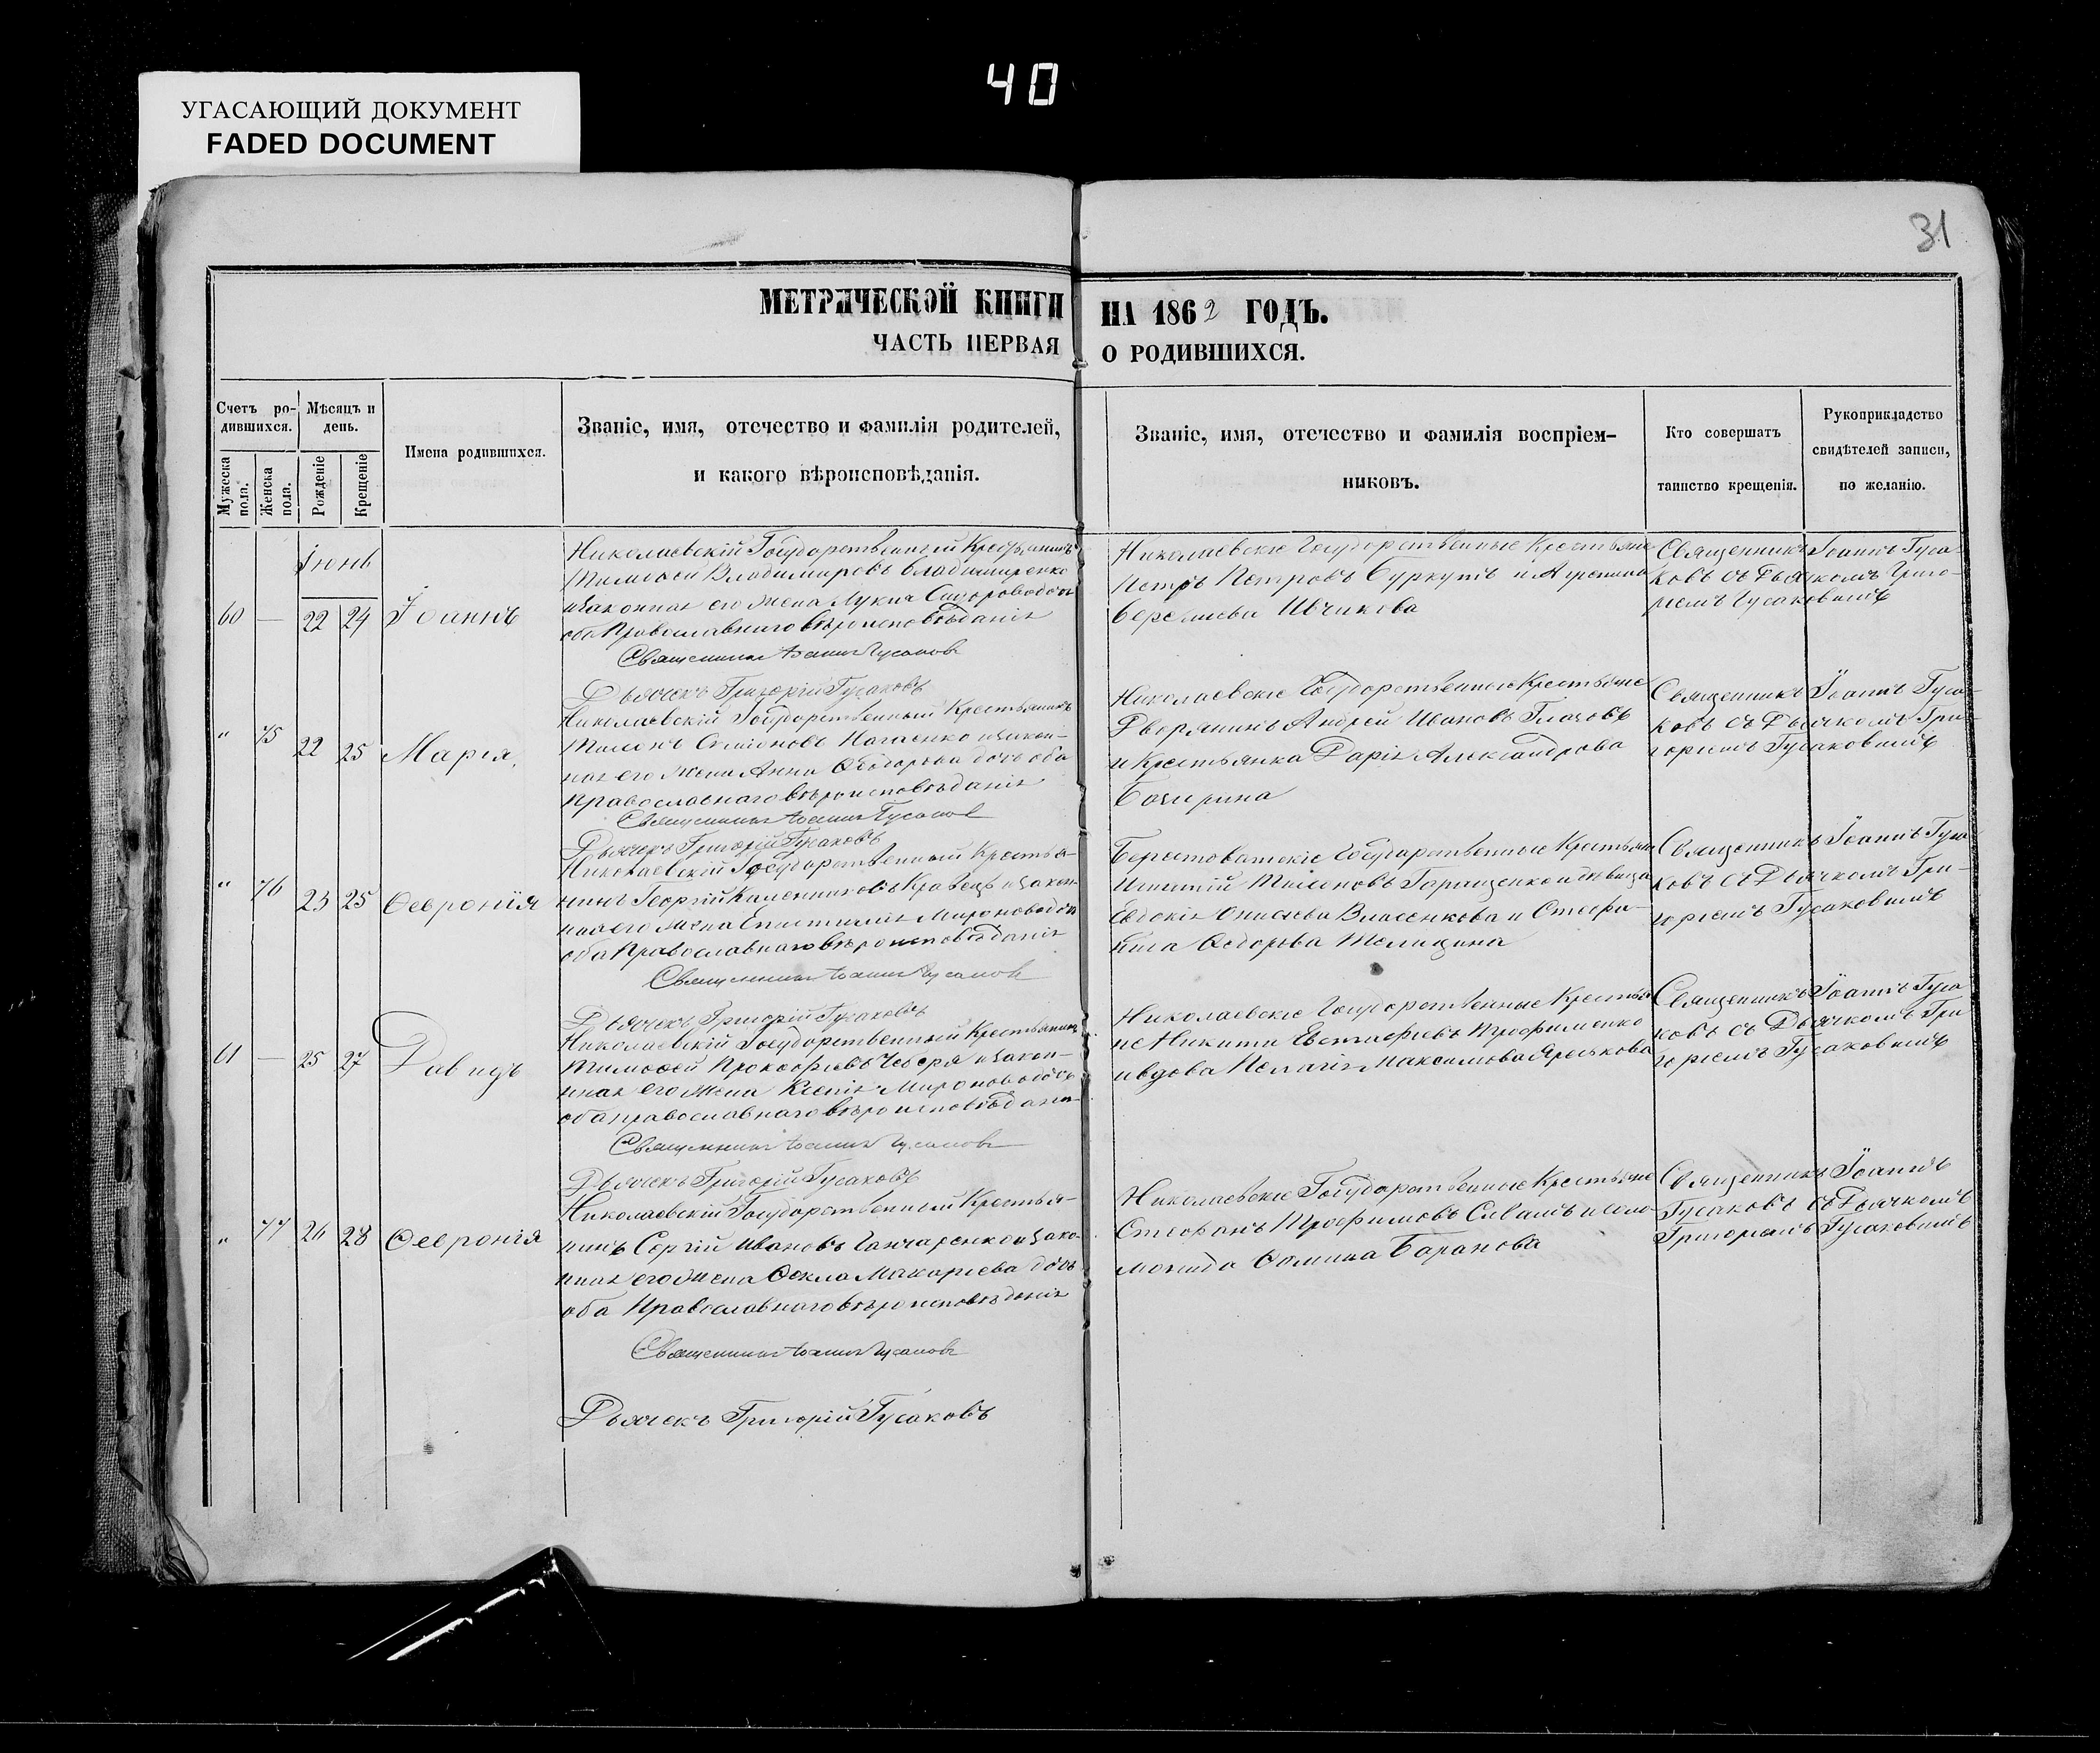 40
УГАСАЮЩИЙ ДОКУМЕНТ
FADED DOCUMENT
31
МЕТРИЧЕСКОЙ КНИГИ НА 1862 ГОДЪ.
ЧАСТЬ ПЕРВАЯ О РОДИВШИХСЯ.
Счетъ ро-
дившихся.
Мужеска пола.
Женска пола.
Мѣсяцъ и
день.
Рожденіе
Крещеніе
Имена родившихся.
Званіе, имя, отечество и фамилія родителей,
и какого вѣроисповѣданія.
Званіе, имя, отечество и фамилія воспріем-
никовъ.
Кто совершатъ
таинство крещенія.
Рукоприкладство
свидѣтелей записи,
по желанію.
Іюнь
60 — 22 24 Іоаннъ
Николаевскій Государственный Крестьянинъ
Тимофей Владимировъ Владимиренко
изаконная его жена
оба Православнаго вѣроисповѣданія
Священникъ Іоаннъ Гусаковъ
Дьячекъ Григорій Гусаковъ
Николаевские Государственные Крестьяне
Петръ Петровъ Буркутъ и
Ивчикова
Священникъ Іоаннъ Гуса-
ковъ съ Дьячкомъ Григо-
ріемъ Гусаковымъ
" 75 22 25 Марія,
Николаевскій Государственный Крестьянинъ
Семіоновъ изакон-
ная его жена Анна Ѳеодорова дочь оба
православнаго вѣроисповѣданія
Священникъ Іоаннъ Гусаковъ
Дьячекъ Григорій Гусаковъ
Николаевские Государственные Крестьяне
Дворянинъ Андрей Ивановъ
и Крестьянка Дарія Александрова
Священникъ Іоаннъ Гуса-
ковъ съ Дьячкомъ Гри-
горіемъ Гусаковымъ
" 76 23 25 Ѳевронія
Николаевскій Государственный Крестья-
нинъ Георгій Кравецъ изакон-
ная его жена Епистимія Миронова дочь
оба Православнаго вѣроисповѣданія
Священникъ Іоаннъ Гусаковъ
Дьячекъ Григорій Гусаковъ
Берестоватскіе Государственные Крестьяне
Игнатій Геращенко и девица
Евдокія Власенкова и Стефа-
Ѳедорова
Священникъ Іоаннъ Гуса-
ковъ съ Дьячкомъ Гри-
горіемъ Гусаковымъ
61 — 25 27 Давидъ
Николаевскій Государственный Крестьянинъ
Тимофей Прокофьевъ изакон-
ная его жена Ксенія Миронова дочь
оба православнаго вѣроисповѣданія
Священникъ Іоаннъ Гусаковъ
Дьячекъ Григорій Гусаковъ
Николаевские Государственные Крестья
не Никита Евстафіевъ Трофименко
ивдова Пелагія Максимова
Священникъ Іоаннъ Гуса
ковъ съ Дьячкомъ Гри
горіемъ Гусаковымъ
" 77 26 28 Ѳевронія
Николаевскій Государственный Крестья-
нинъ Сергій Ивановъ Ганчаренко изако-
нная его жена Ѳекла Макарьева дочь
оба Православнаго вѣроисповѣданія
Священникъ Іоаннъ Гусаковъ
Дьячекъ Григорій Гусаковъ
Николаевские Государственные Крестьяне
Стефанъ Трофимовъ
Ѳомина Баранова
Священникъ Іоаннъ
Гусаковъ съ Дьячкомъ
Григоріемъ Гусаковымъ